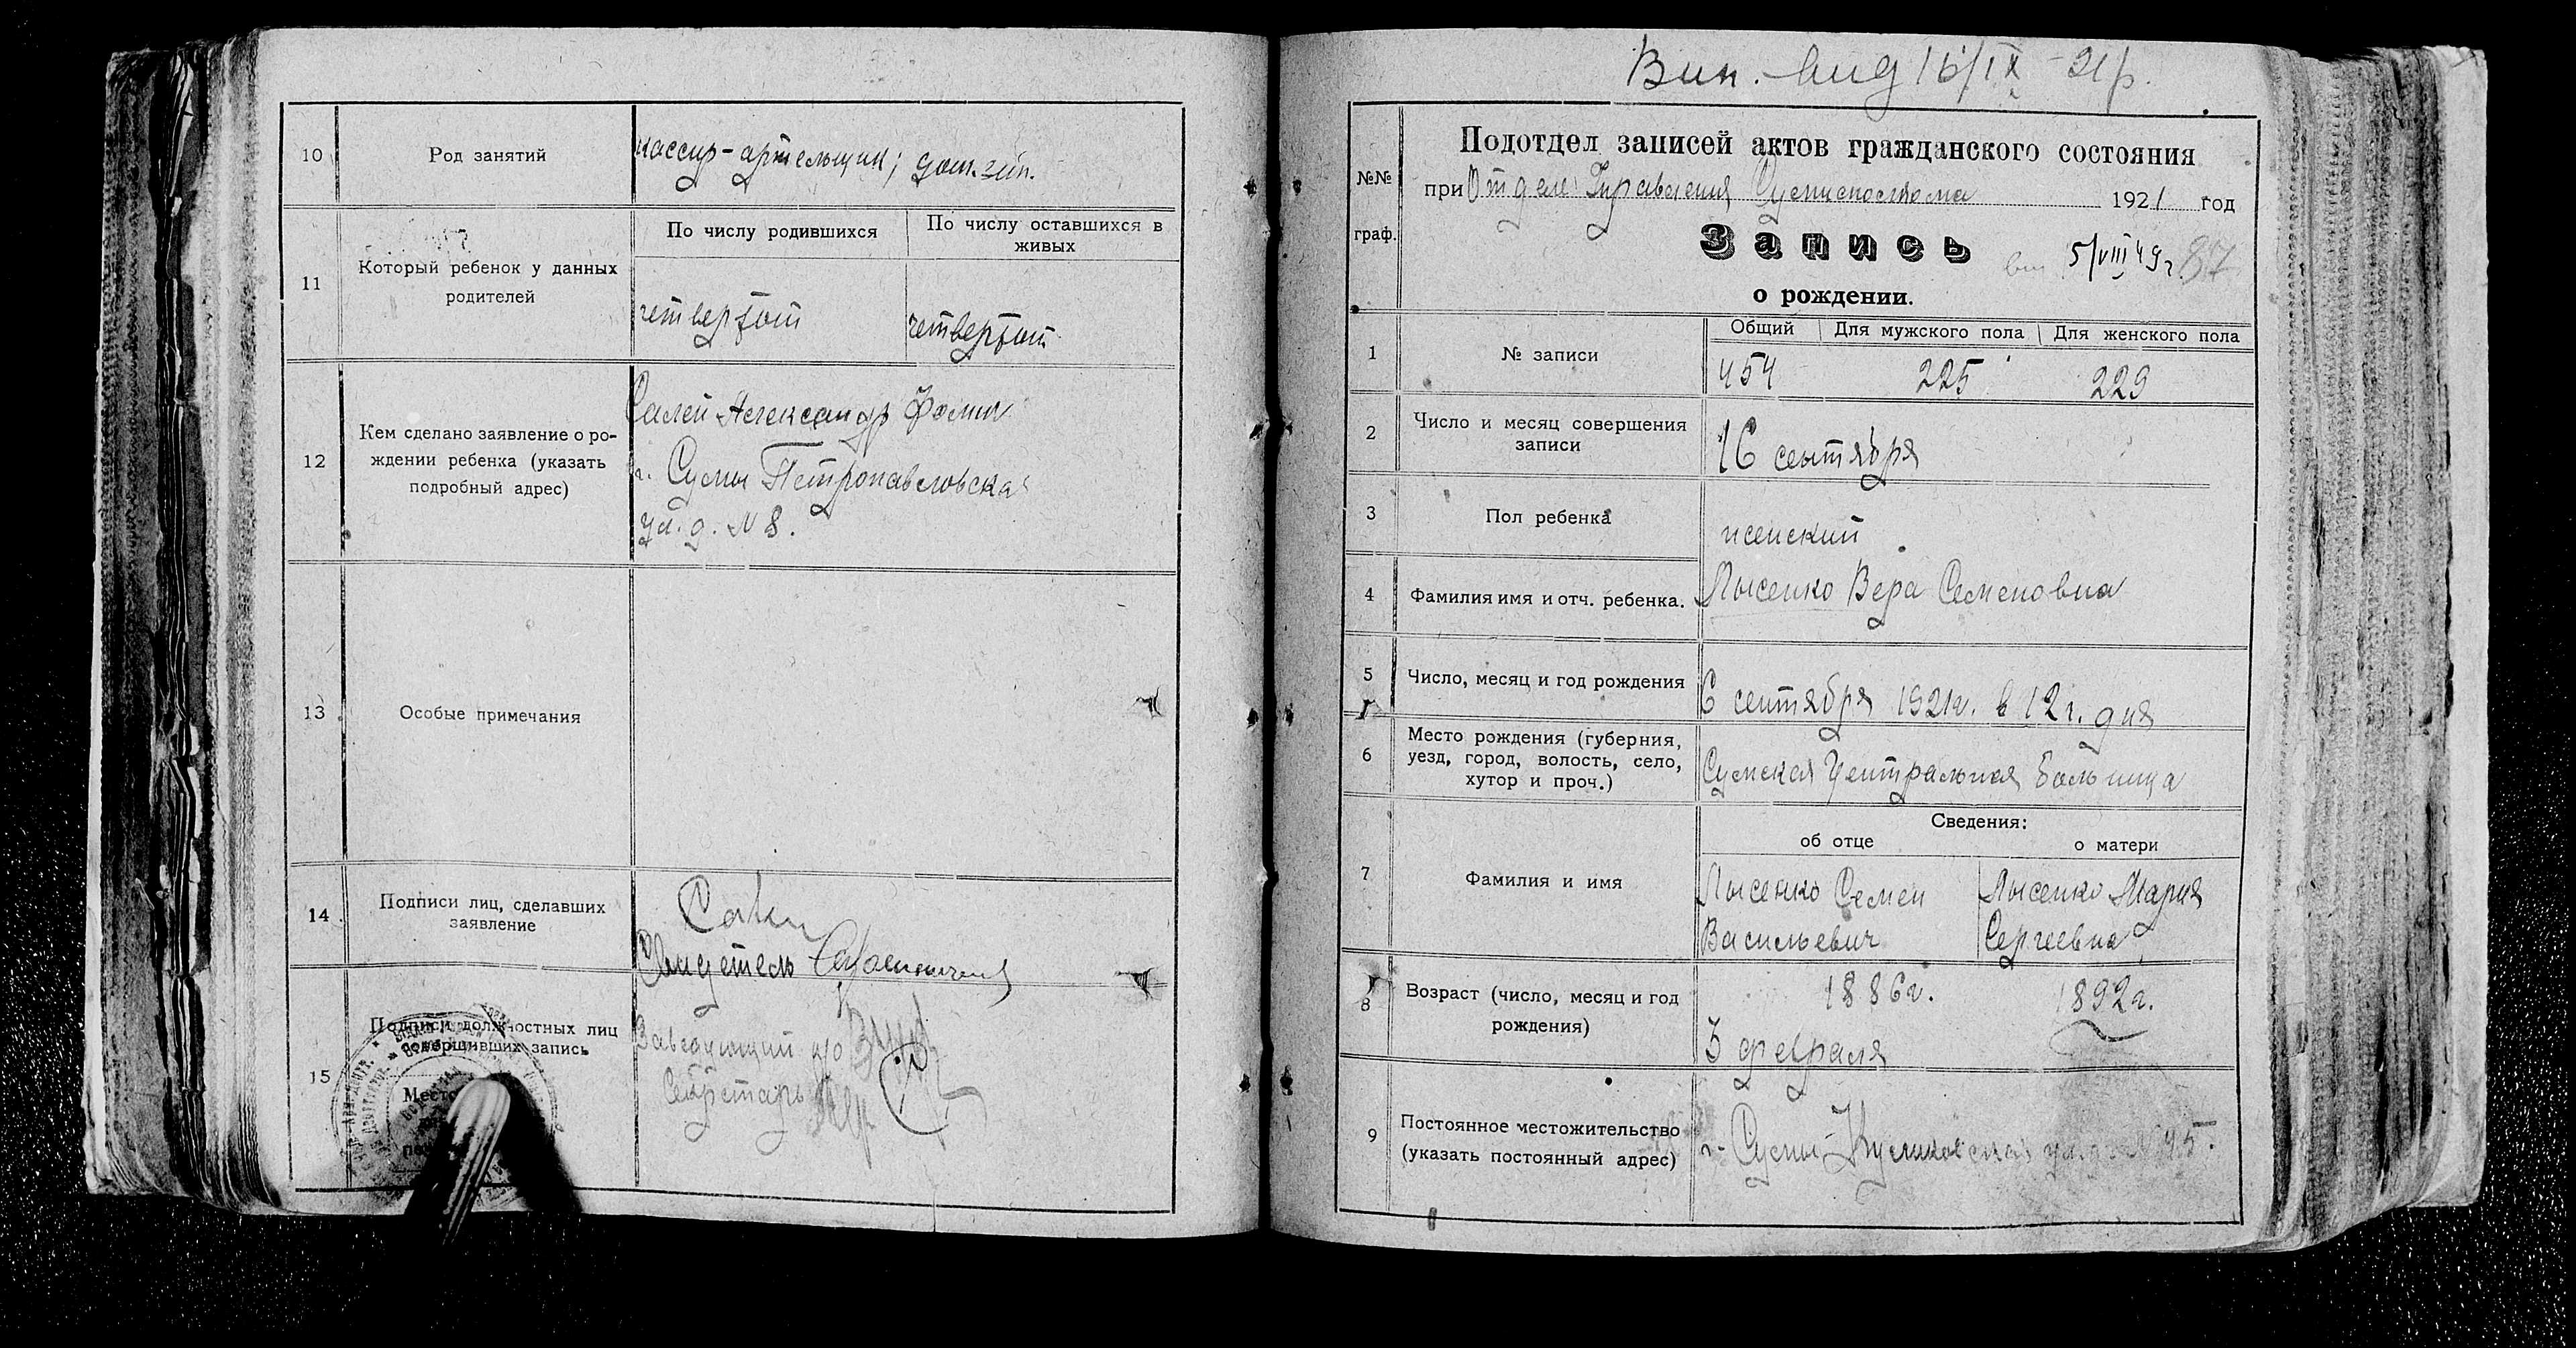 10
Род занятий
кассир-артельщик; дом. зан.
11
Который ребенок у данных
родителей
По числу родившихся
По числу оставшихся в
живых
четвертый
четвертый
12
Кем сделано заявление о ро-
ждении ребенка (указать
подробный адрес)
Салей Александр Фомич
г. Сумы Петропавловская
ул. д. № 8.
13
Особые примечания
14
Подписи лиц, сделавших
заявление
Свидетель
15
Подписи должностных лиц
совершивших запись
Место
Заведующий п/о
Секретарь
Вип. 16/IX 21р.
№№
граф.
Подотдел записей актов гражданского состояния
при Отделе Управления Сумисполкома 1921 год
Запись
5/VIII 49 г. 87
о рождении.
1
№ записи
Общий
Для мужского пола
Для женского пола
454
225
229
2
Число и месяц совершения
записи
16 сентября
3
Пол ребенка
женский
4
Фамилия имя и отч. ребенка.
Лысенко Вера Семеновна
5
Число, месяц и год рождения
6 сентября 1921г. в 12 ч. дня
6
Место рождения (губерния,
уезд, город, волость, село,
хутор и проч.)
Сумская Центральная больница
Сведения:
об отце
о матери
7
Фамилия и имя
Лысенко Семен
Васильевич
Лысенко Мария
Сергеевна
8
Возраст (число, месяц и год
рождения)
1886г.
3 февраля
1892г.
9
Постоянное местожительство
(указать постоянный адрес)
г. Сумы Куликовская № 45.